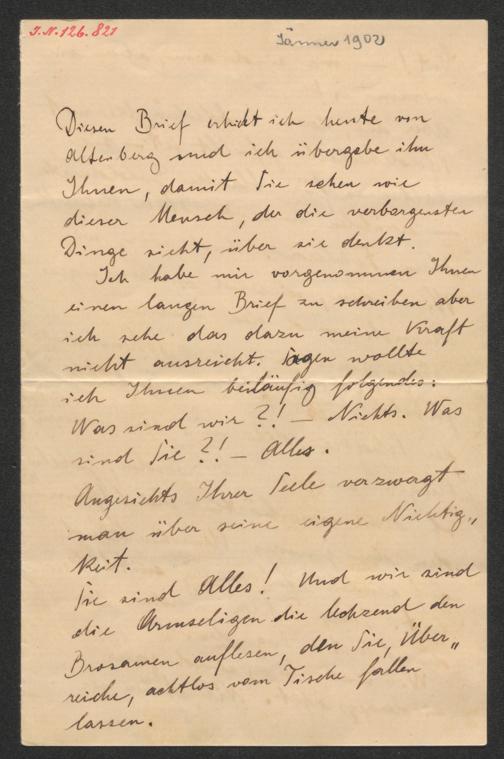 J.N.126.821
Jänner 1902
Diesen Brief erhielt ich heute von
Altenberg und ich übergebe ihn
Ihnen, damit Sie sehen wie
dieser Mensch, der die verborgensten
Dinge sieht, über sie denkt.
Ich habe mir vorgenommen Ihnen
einen langen Brief zu schreiben aber
ich sehe das dazu meine Kraft
nicht ausreicht. Sagen wollte
ich Ihnen beiläufig folgendes:
Was sind wir ?! – Nichts. Was
sind Sie ?! – Alles.
Angesichts Ihrer Seele verzweagt
man über seine eigene Nichtig„
keit.
Sie sind Alles! Und wir sind
die Armseligen die lechzend den
Brosamen auflesen, den Sie, Über„
reiche, achtlos vom Tische fallen
lassen.